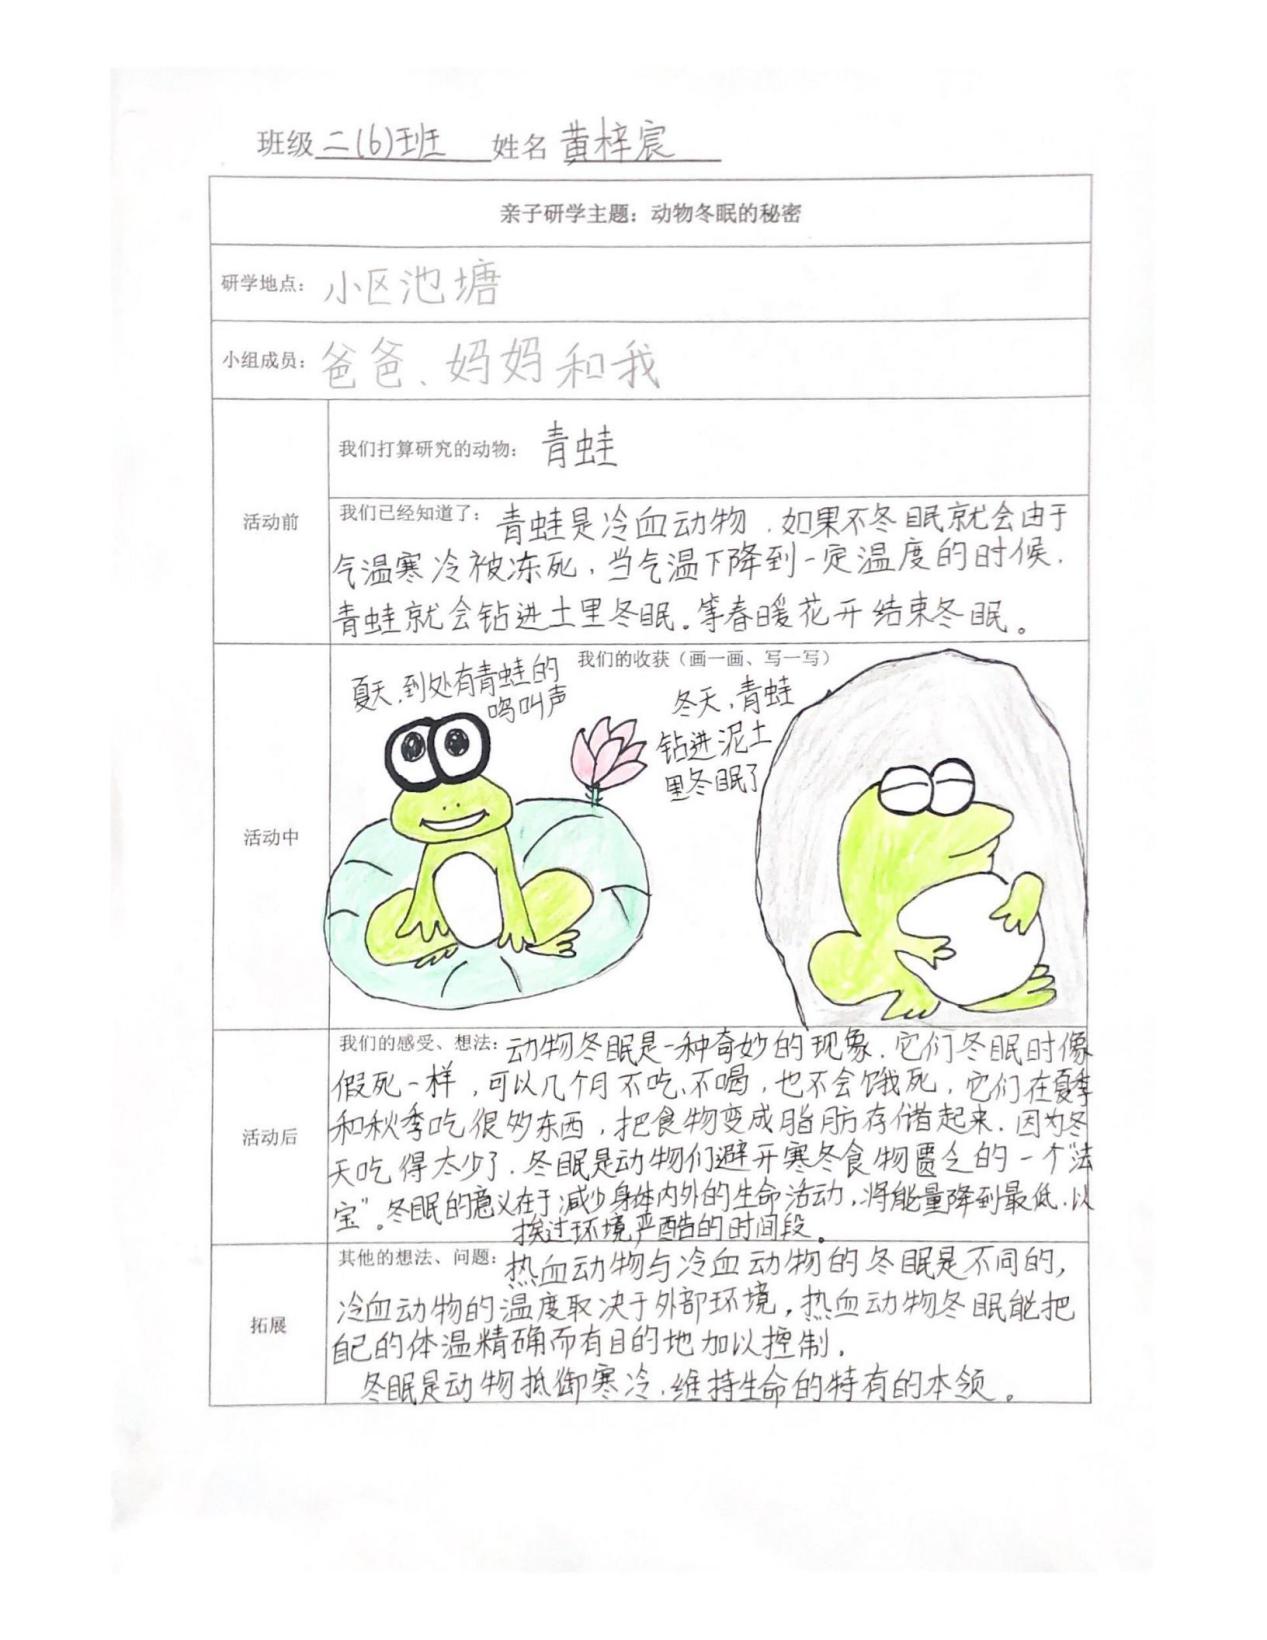 班级二(6)班 姓名黄梓宸
亲子研学主题：动物冬眠的秘密
研学地点：小区池塘
小组成员：爸爸、妈妈和我
活动前
我们打算研究的动物：青蛙
我们已经知道了：青蛙是冷血动物，如果不冬眠就会由于
气温寒冷被冻死，当气温下降到一定温度的时候，
青蛙就会钻进土里冬眠。等春暖花开结束冬眠。
活动中
我们的收获（画一画、写一写）
夏天，到处有青蛙的
鸣叫声
冬天，青蛙
钻进泥土
里冬眠了
活动后
我们的感受、想法：动物冬眠是一种奇妙的现象，它们冬眠时像
假死一样，可以几个月不吃、不喝，也不会饿死，它们在夏季
和秋季吃很多东西，把食物变成脂肪存储起来，因为冬
天吃得太少了，冬眠是动物们避开寒冬食物匮乏的一个"法
宝"。冬眠的意义在于减少身体内外的生命活动，将能量降到最低，以
挨过环境严酷的时间段。
拓展
其他的想法、问题：热血动物与冷血动物的冬眠是不同的，
冷血动物的温度取决于外部环境，热血动物冬眠能把
自己的体温精确而有目的地加以控制。
冬眠是动物抵御寒冷，维持生命的特有的本领。